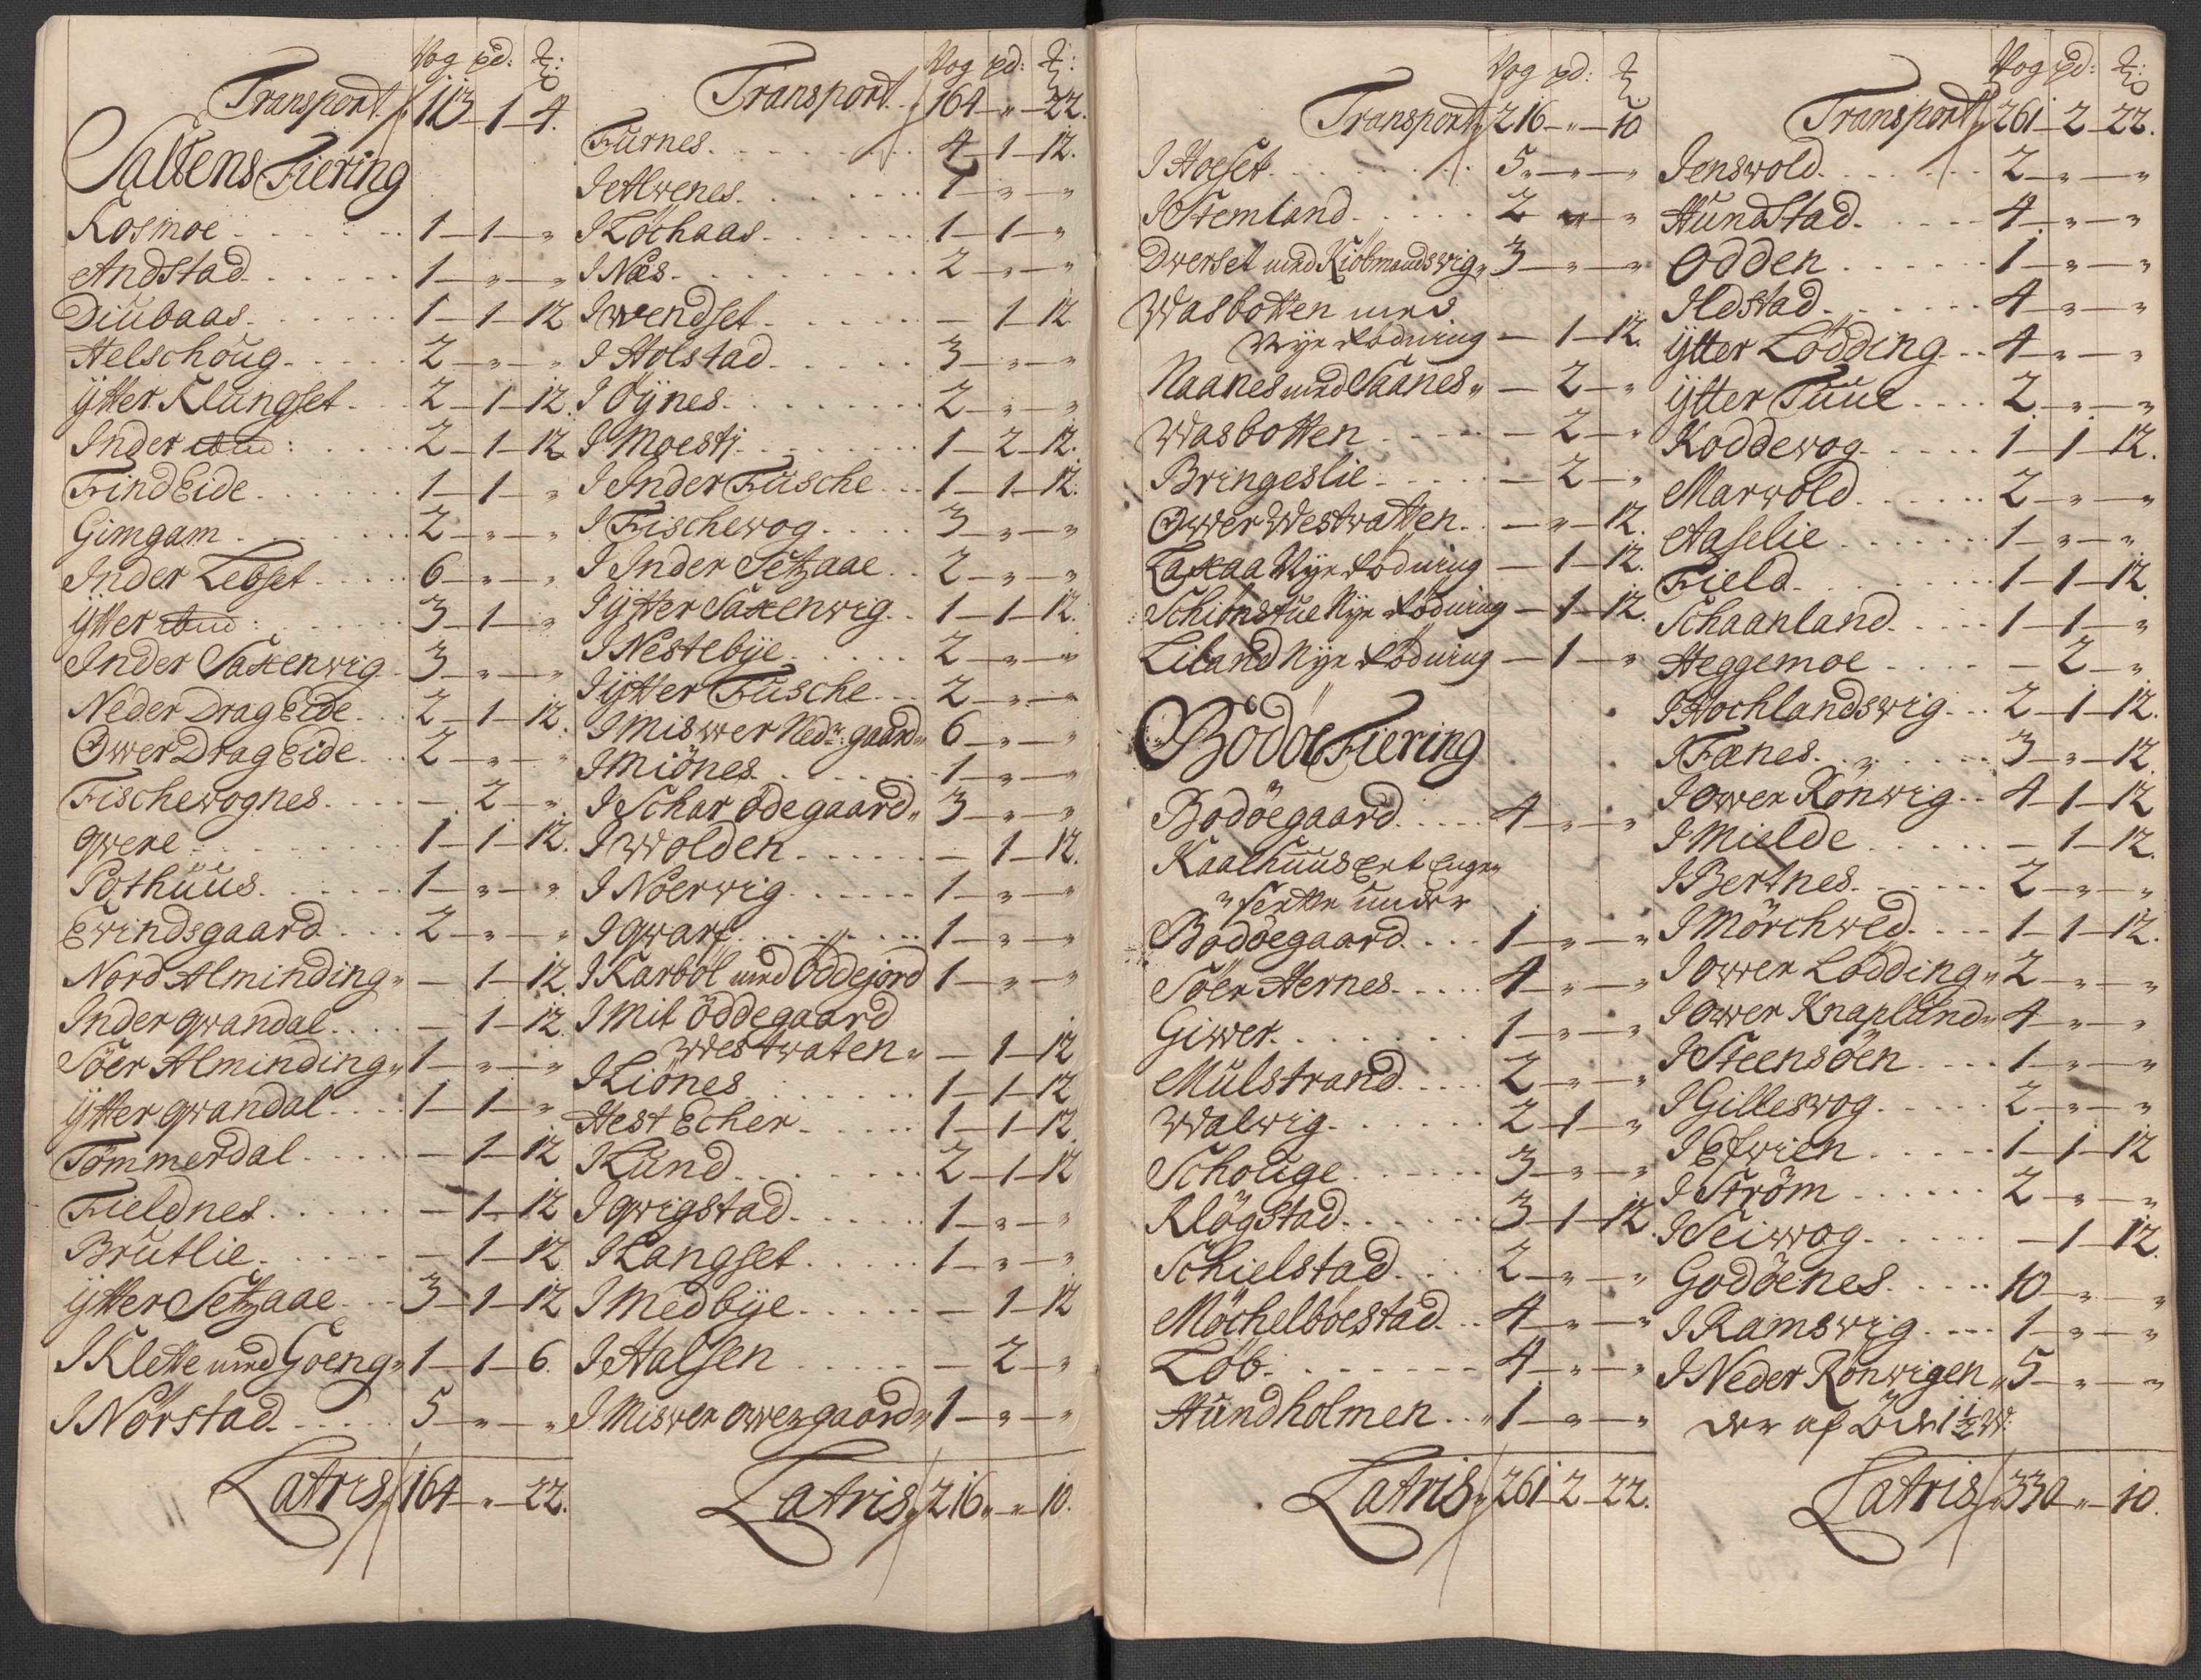 Vog pd: ℔:
Transport // 113 – 1 – 4.
Saltens Fiering
Kosmoe . . . . . . 1 – 1 – „
Andstad . . . . . 1 – „ – „
Diübaas . . . . . 1 – 1 – 12
Helschoug . . . . 2 – „ – „
ÿtter Klüngset . . 2 – 1 – 12.
Inder ibid: . . . . 2 – 1 – 12
FindEide . . . . . 1 – 1 – „
Gimgam . . . . . 2 – „ – „
Inder Lebset . . . . 6 – „ – „
ÿtter ibid: . . . . 3 – 1 – „
Inder Saxenwig . . 3 – „ – „
Neder DragEide . . 2 – 1 – 12.
Øwer DragEide . . 2 – „ – „
Fischewognes . . . . – 2 – „
qwere . . . . . . 1 – 1 – 12.
Pothüüs . . . . . 1 – „ – „
Ewindsgaard . . . 2 – „ – „
Nord Alminding „ – 1 – 12.
Inder qwandal . . . – 1 – 12.
Söer Alminding „ 1 – „ – „
ÿtter qwandal . . . 1 – 1 – „
Tömmerdal . . . . – 1 – 12
Fieldnes . . . . . – 1 – 12
Brütlie . . . . . – 1 – 12
ÿtter Setzaae . . . 3 – 1 – 12
I Klette med Goeng „ 1 – 1 – 6.
I Nörstad . . . . 5 – „ – „
Latris // 164 – „ – 22.
Vog pd: ℔:
Transport // 164 – „ – 22.
Fürnes . . . . . . 4 – 1 – 12.
I Alwenes . . . . . 1 – „ – „
I Löchaas . . . . . 1 – 1 – „
I Næs . . . . . . 2 – „ – „
I wendset . . . . . – 1 – 12
I Holstad . . . . . 3 – „ – „
I Öÿnes . . . . . . 2 – „ – „
I Moestj . . . . . 1 – 2 – 12.
I Inder Füsche . . . 1 – 1 – 12.
I Fischewog . . . . 3 – „ – „
I Inder Setzaae . . 2 – „ – „
I ÿtter Saxenwig . . 1 – 1 – 12.
I Nestebÿe . . . . 2 – „ – „
I ÿtter Füsche . . . 2 – „ – „
I Miswer Nedr: gaard „ 6 – „ – „
I Miönes . . . . . 1 – „ – „
I Schar ödegaard „ 3 – „ – „
I Wolden . . . . . – 1 – 12.
I Noerwig . . . . . 1 – „ – „
I qwarf . . . . . 1 – „ – „
I Karböl med Oddejord 1 – „ – „
I Mit öddegaard
Westwaten „ – 1 – 12
I Liönes . . . . . 1 – 1 – 12
Hest Echer . . . . 1 – 1 – 12.
I Lünd . . . . . . 2 – 1 – 12
I qwigstad . . . . 1 – „ – „
I Langset . . . . . 1 – „ – „
I Medbÿe . . . . . – 1 – 12
I Halsen . . . . . – 2 – „
I Miswer owergaard „ 1 – „ – „
Latris // 216 „ – „ – 10.
Vog pd: ℔
Transport // 216 – „ – 10
I Hoeset . . . . . 5 „ – „ – „
I Stemland . . . . 2 „ – „
Dwerset med Kiöbmandswig „ 3 – „ – „
Wasbotten med
Nÿe Rödning – 1 – 12.
Naanes med Saanes „ – 2 – „
Wasbotten . . . . – 2 – „
Bringeslie . . . . – 2 – „
Øwer Westwatten . . – „ – 12.
Laxaa Nÿe Rödning – 1 – 12.
Schionstue Nÿe Rödning – 1 – 12.
Liland Nÿe Rödning – 1 – „
Bodöe Fiering
Bodöegaard . . . . 4 – „ – „
Kaalhuus Ert Enge „
„ sætter under
Bodöegaard . . . . 1 – „ – „
Söer Hernes . . . . 4 – „ – „
Giwer . . . . . . 1 – „ – „
Mülstrand . . . . 2 – „ – „
Walwig . . . . . . 2 – 1 – „
Schouge . . . . . 3 – „ – „
Klögstad . . . . . 3 – 1 – 12.
Schielstad . . . . 2 – „ – „
Möchelböestad . . 4 – „ – „
Löb . . . . . . . 4 – „ – „
Hündholmen . . „ 1 – „ – „
Latris // 261 – 2 – 22.
Vog pd: ℔:
Transport // 261 – 2 – 22.
Jenswold . . . . . 2 – „ – „
Hündstad . . . . . 4 – „ – „
Odden . . . . . . 1 – „ – „
Ildstad . . . . . . 4 – „ – „
ÿtter Lödding . . 4 – „ – „
ÿtter Tüüe . . . . 2 – „ – „
Koddewog . . . . . 1 – 1 – 12.
Marwold . . . . . 2 – „ – „
Aaselie . . . . . . 1 – „ – „
Field . . . . . . . 1 – 1 – 12.
Schaanland . . . . 1 – 1 – „
Heggemoe . . . . – 2 – „
I Hochlandswig . . 2 – 1 – 12.
I Fænes . . . . . 3 – „ – 12
I ower Rönwig . . 4 – 1 – 12
I Mielde . . . . . – 1 – 12.
I Bertnes . . . . . 2 – „ – „
I Mörchwed . . . . 1 – 1 – 12.
I ower Lödding „ 2 – „ – „
I ower Knaplünd „ 4 – „ – „
I Steensöen . . . . 1 – „ – „
I Gilleswog . . . . 2 – „ – „
I Efwien . . . . . 1 – 1 – 12
I Ström . . . . . 2 – „ – „
I Seiwog . . . . . – 1 – 12.
Godöenes . . . . 10 – „ – „
I Ramswig . . . . 1 – „ – „
I Neder Rönwigen „ 5 – „ – „
der af Öde 1½ W:
Latris // 330 „ – 10.